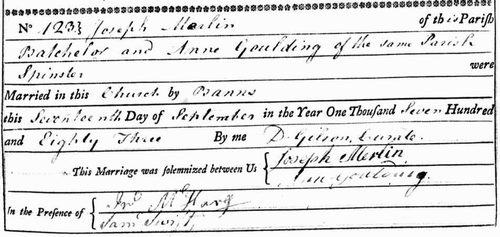 No 1233 Joseph Merlin of this Parish
Batchelor and Anne Goulding of the same Parish
Spinster were
Married in this Church by Banns
this Seventeenth Day of September in the Year One Thousand Seven Hundred
and Eighty Three By me D. Gilson, Curate.
This Marriage was solemnized between Us Joseph Merlin
Ann Goulding.
In the Presence of Jno. Mc
Saml. Swift